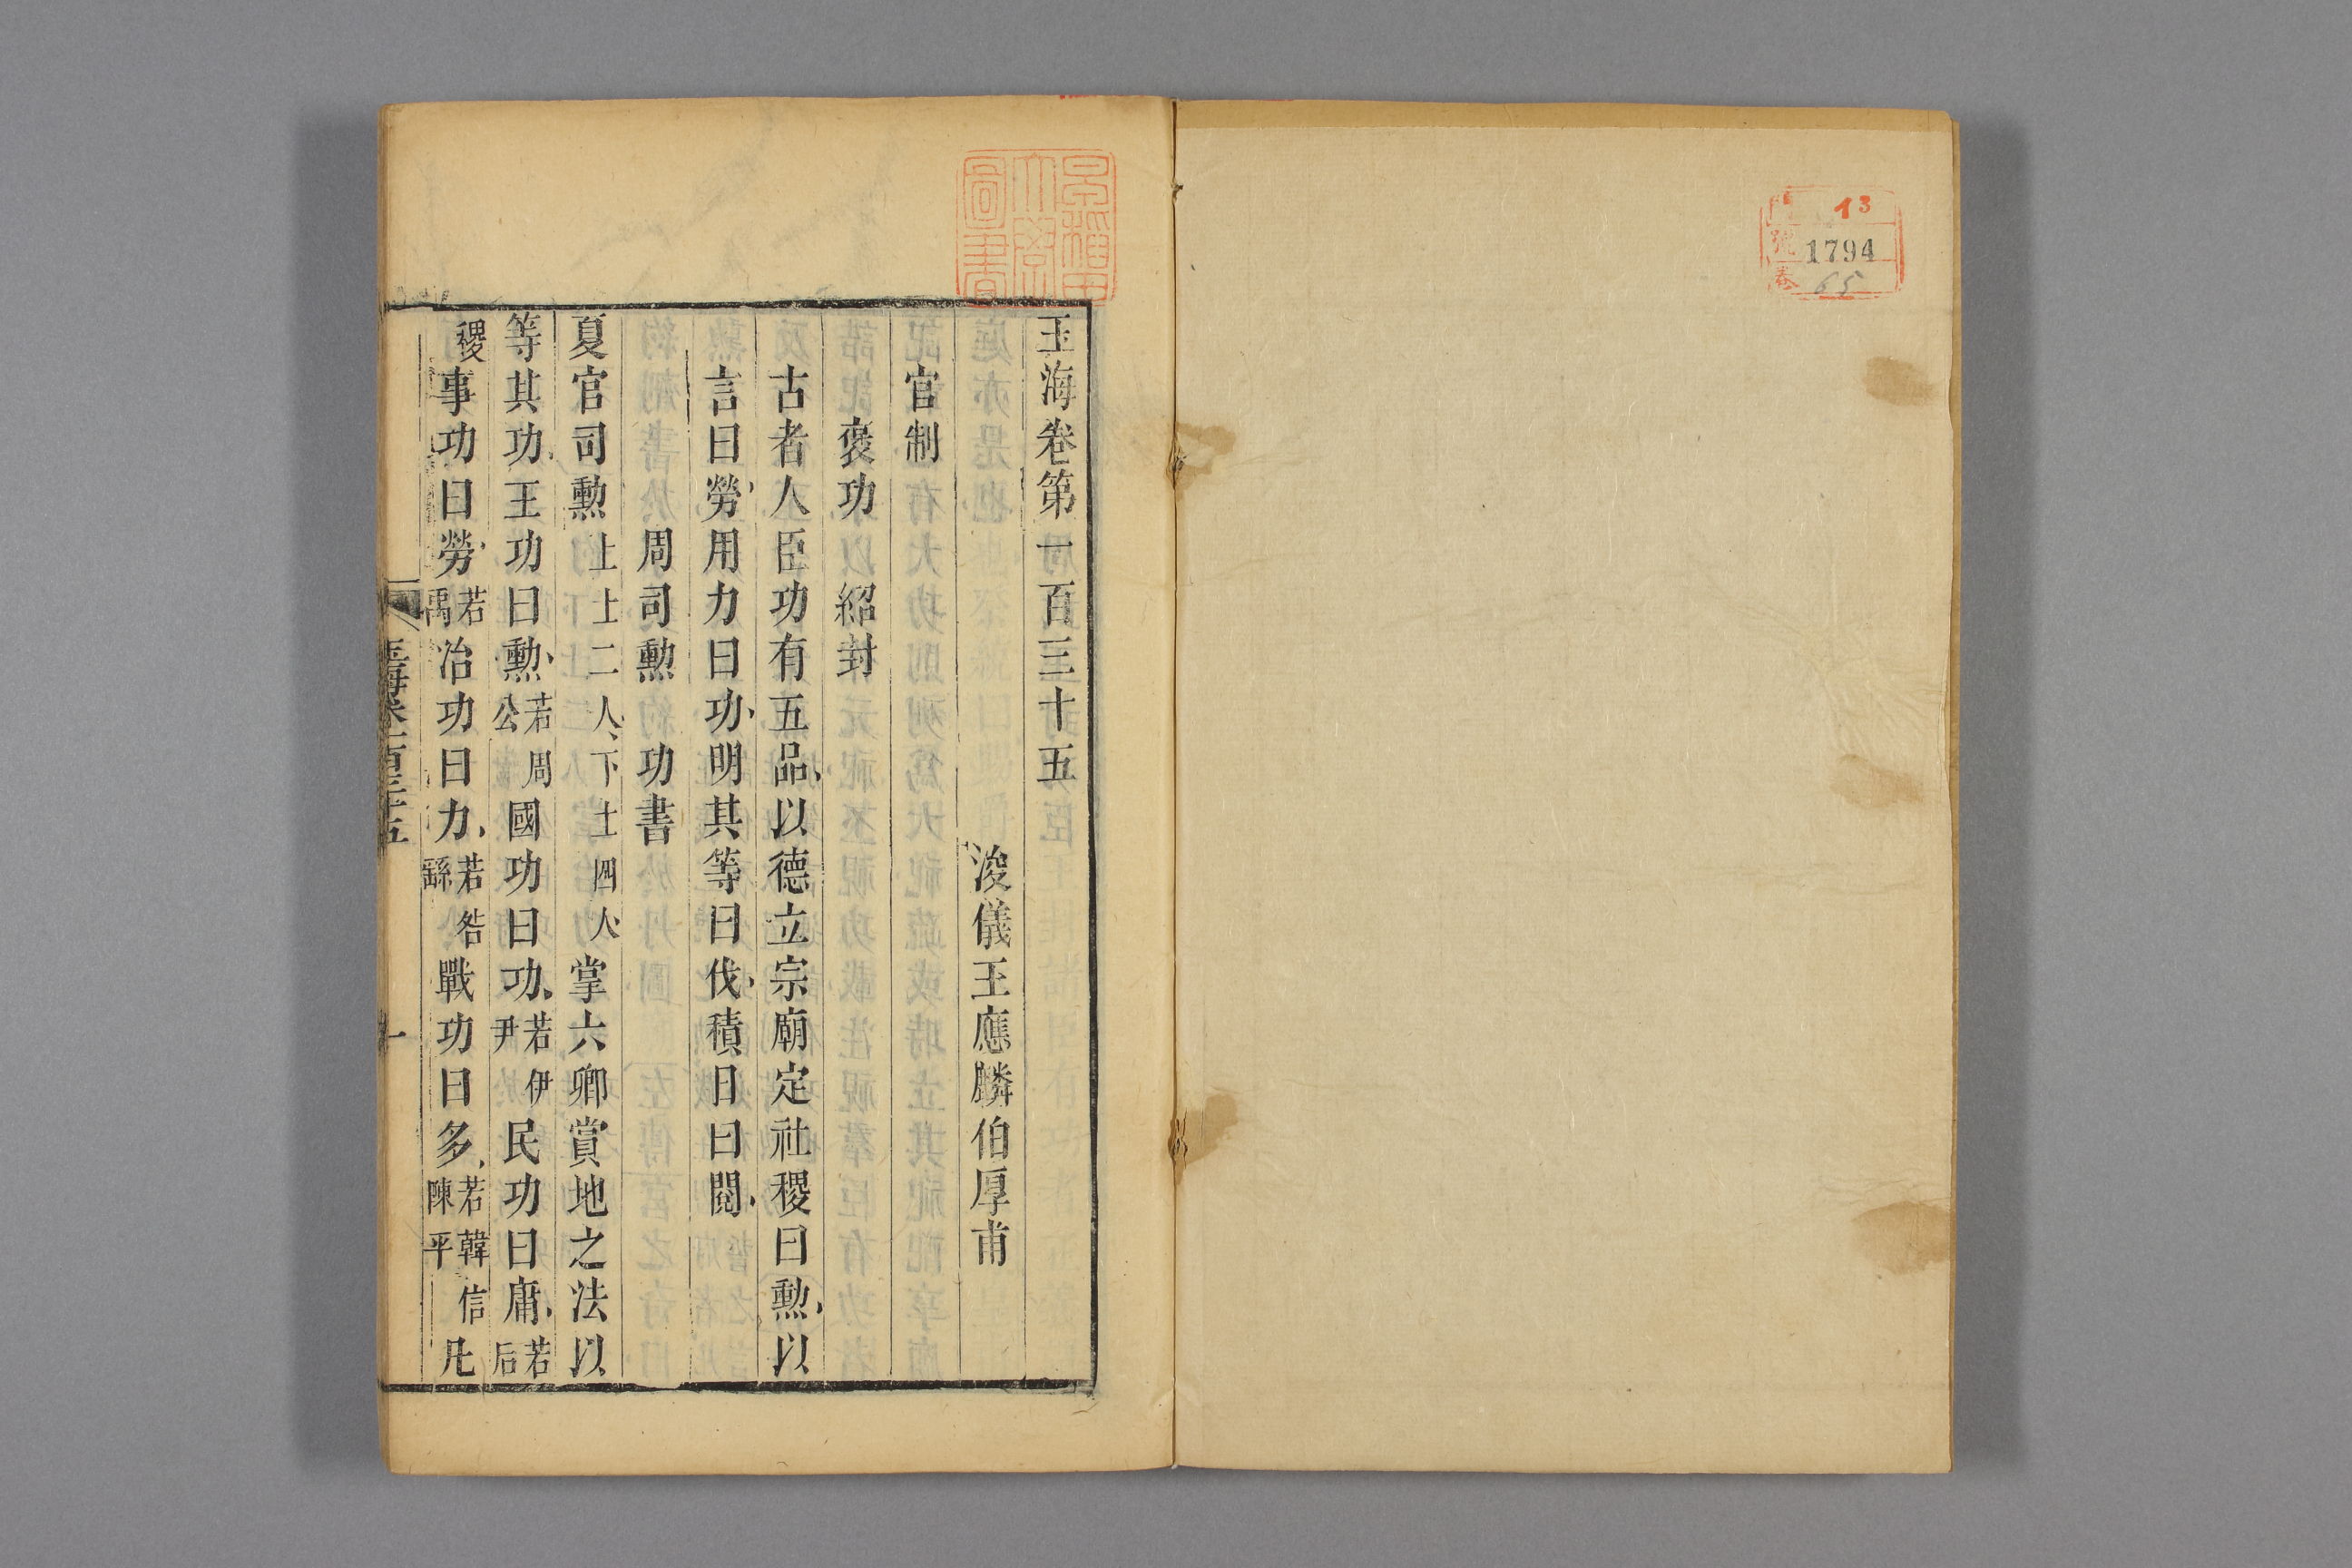 13
號 1794
卷 65
早稲田大學圖書
玉海卷第一百三十五
浚儀王應麟伯厚甫
官制
褒功 紹封
古者人臣功有五品以德立宗廟定社稷曰勲以
言曰勞用力曰功明其等曰伐積日曰閱
周司勲 功書
夏官司勲上士二人下士四人掌六卿賞地之法以
等其功王功曰勲若周公國功曰功若伊尹民功曰庸若后
稷事功曰勞若禹治功曰力若咎繇戰功曰多若韓信陳平凡
玉海卷一百三十五 一